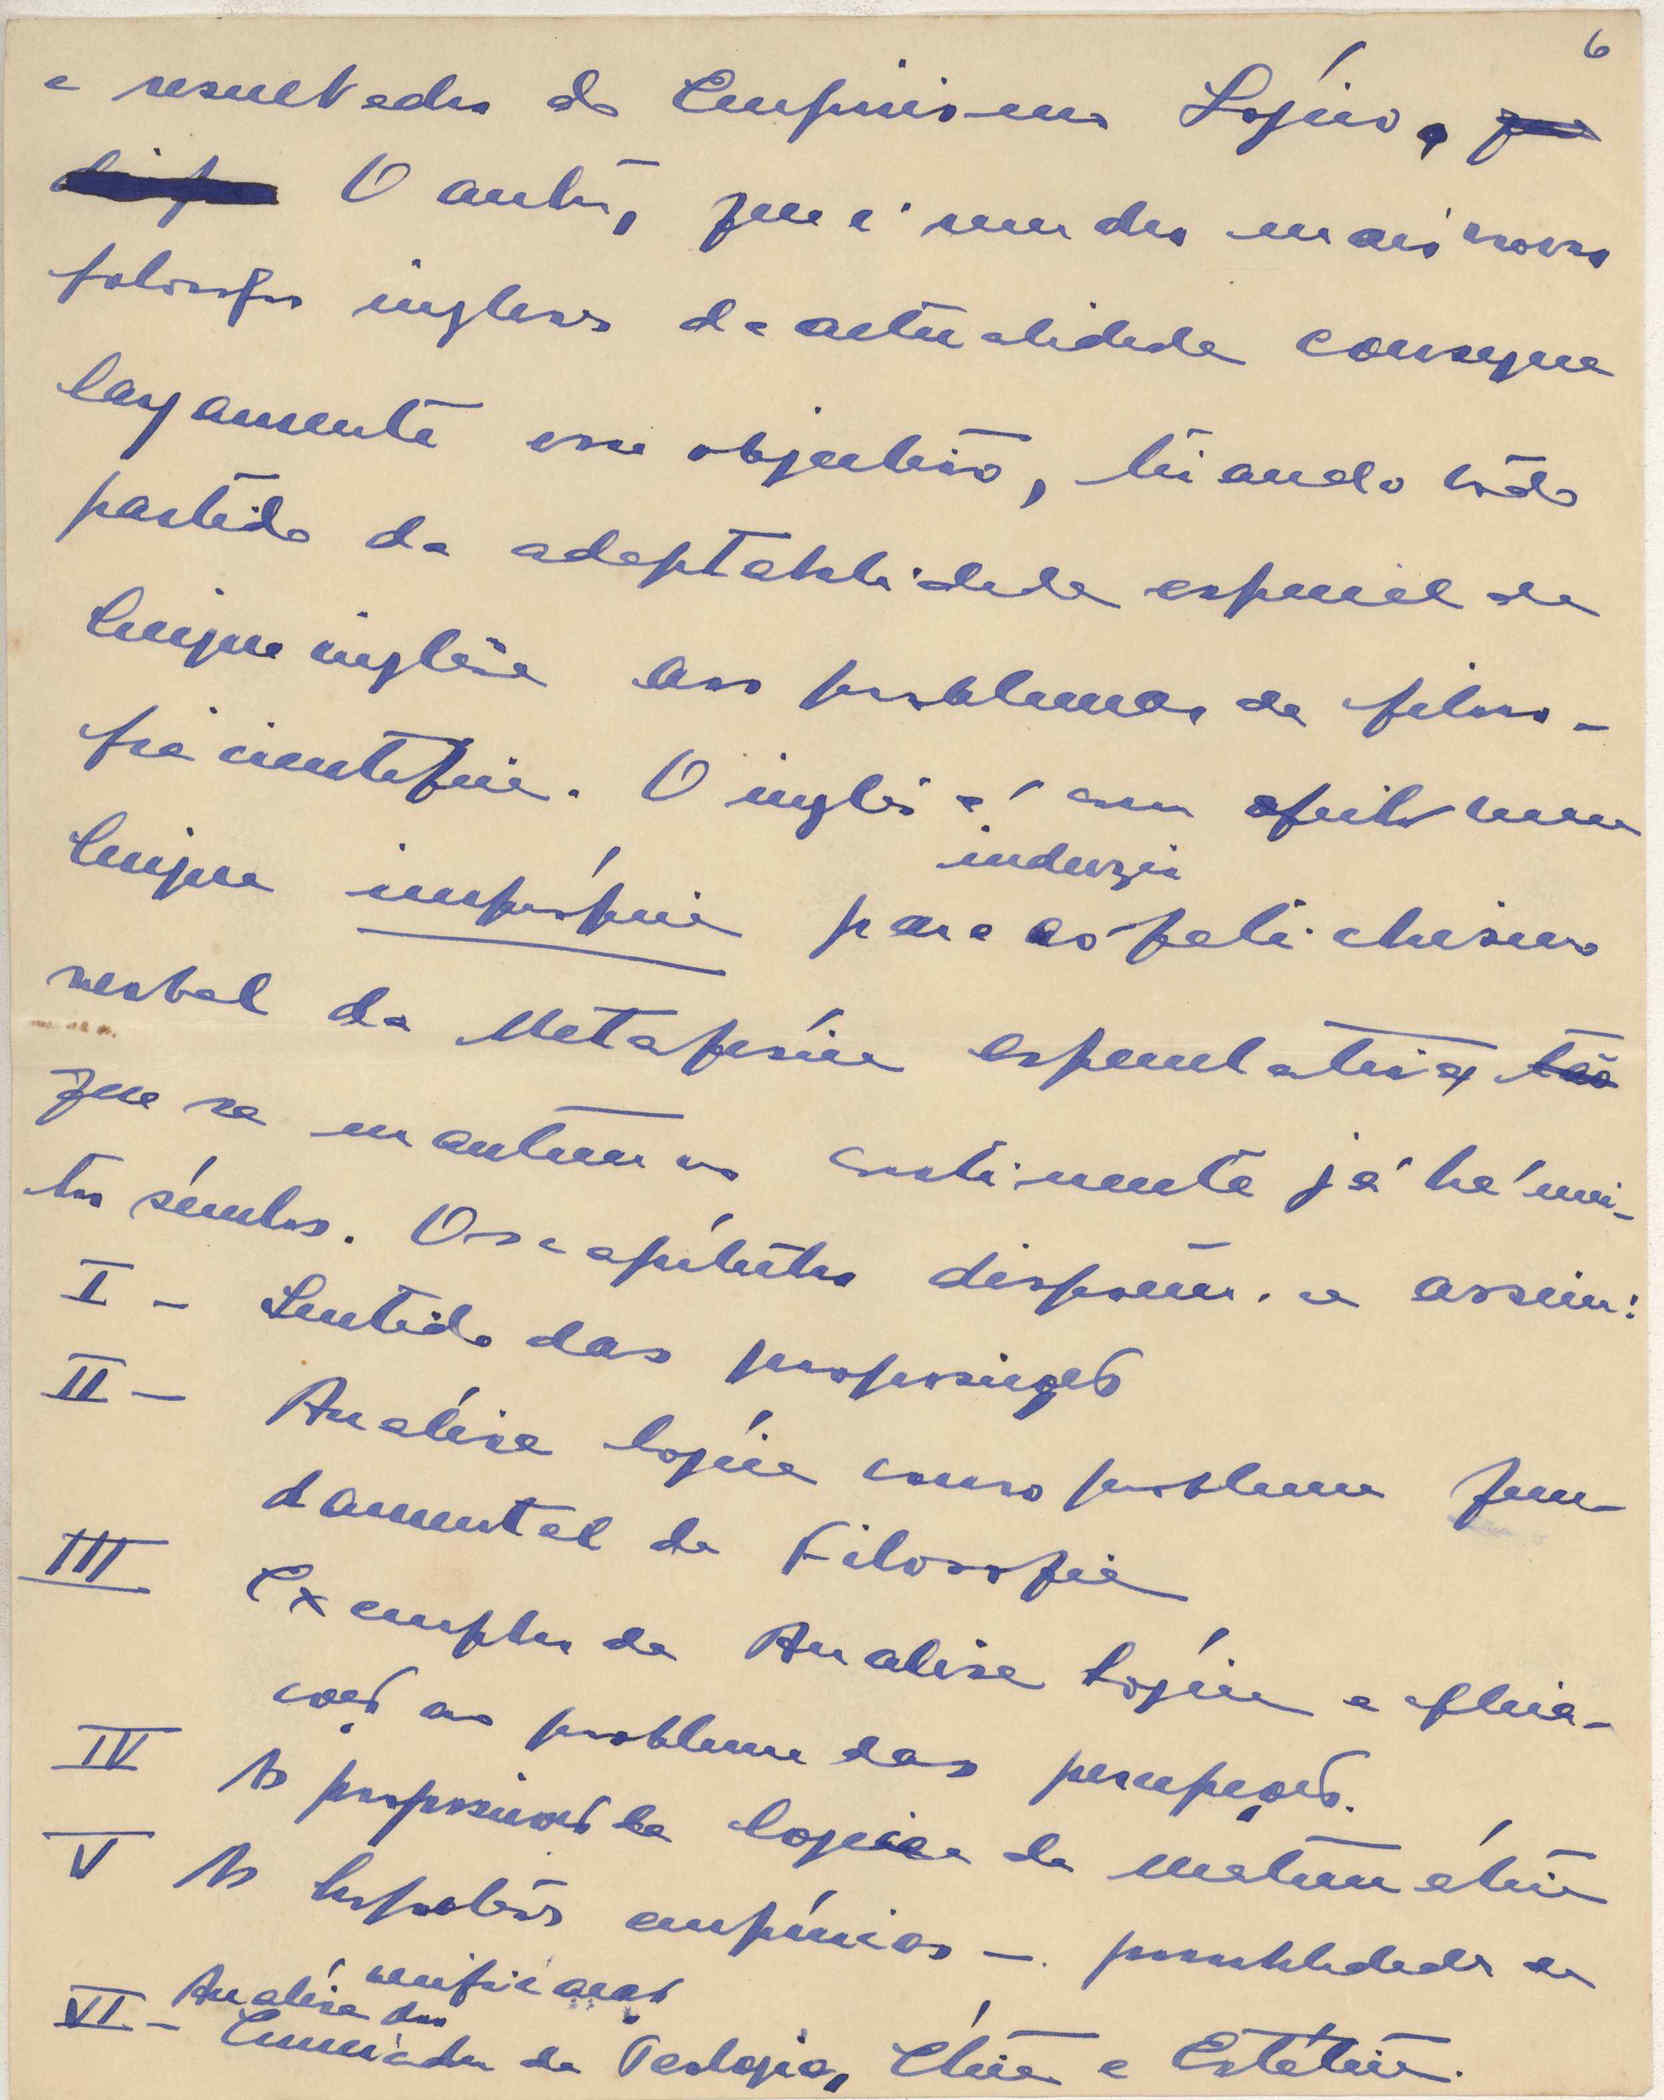 6
e resultados do Empirismo Lógico, que
O autor, que é um dos mais novos
filosofos ingleses da actualidade consegue
largamente esse objectivo, tirando todo
partido da adaptabilidade especial da
lingua inglêsa aos problemas da filoso-
fia cientifica. O inglês é com efeito uma
induzir
lingua imprópria para ao fetichismo
verbal da Metafísica especulativa, tão
que se mantem no continente já há mui-
tos séculos. Os capítulos dispoem-se assim:
I - Sentido das proposições
II - Análise lógica como problema fun
damental da Filosofia
III Exemplos da Analise Lógica e aplica-
coes ao problema das percepções.
IV As proposições da logica e da matemática
V As hipoteses empíricas - possibilidade da
verificação
Análise dos
VI - Enunciados da Teologia, Ética e Estética.